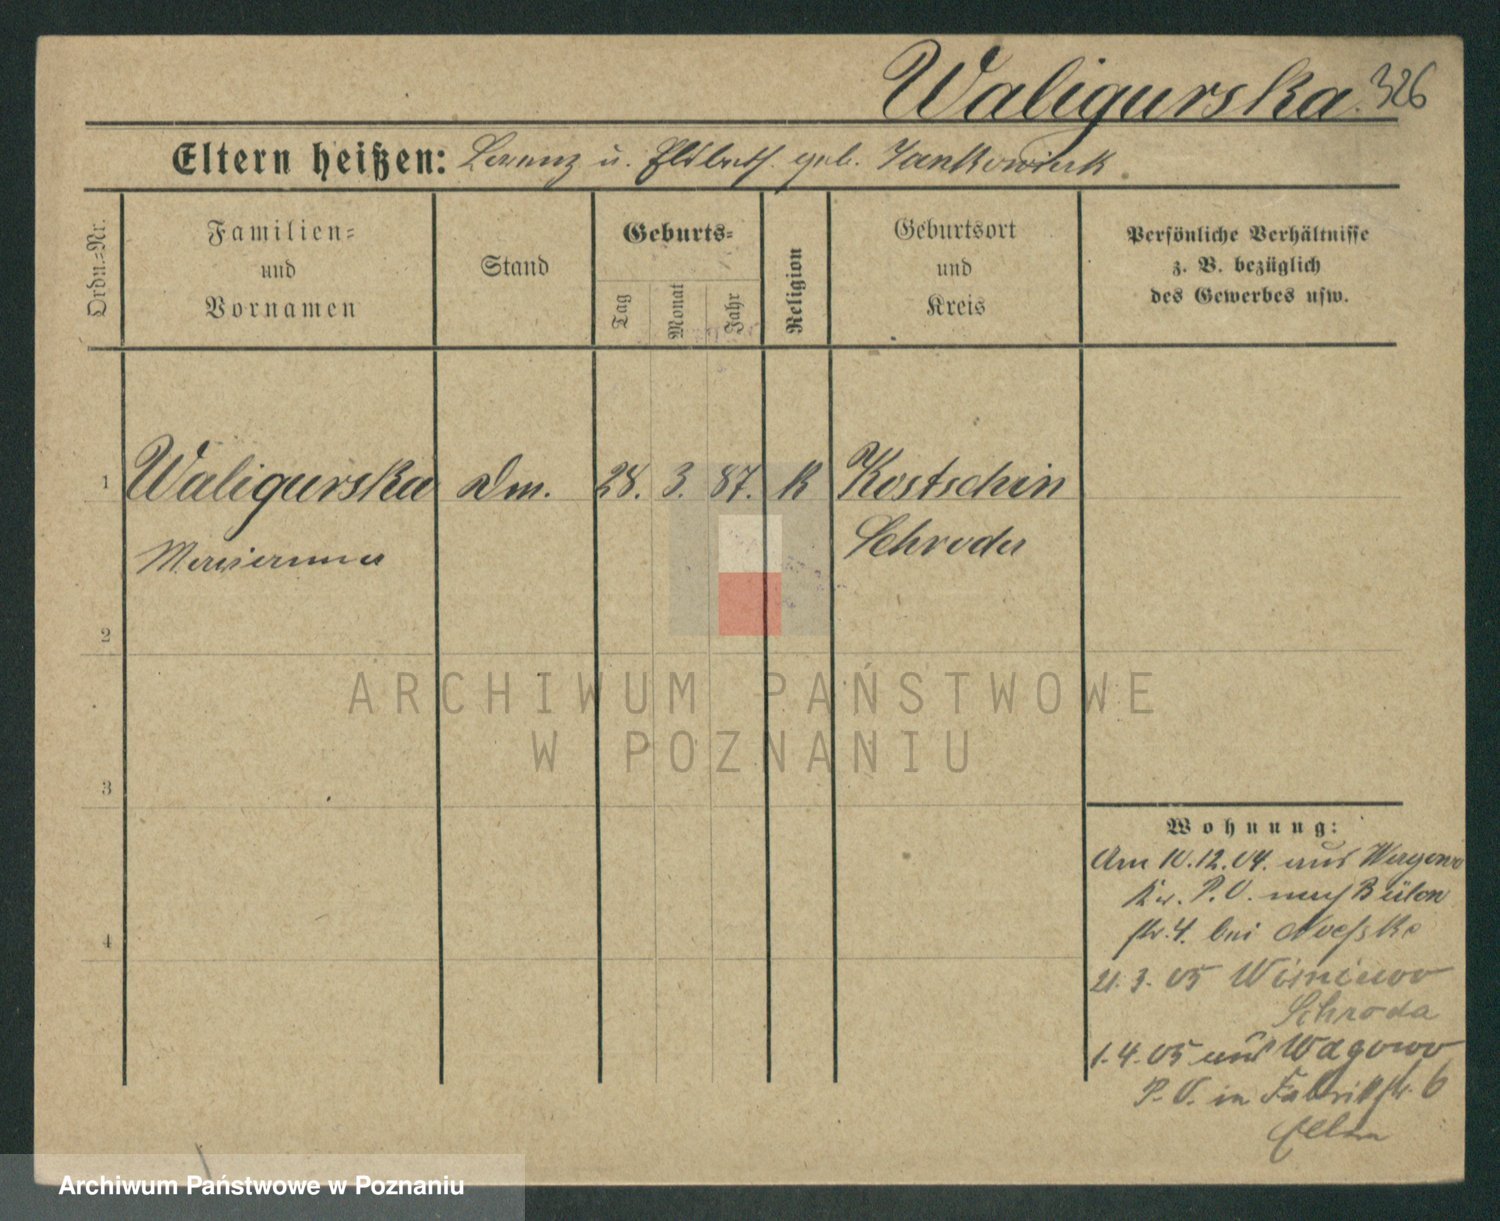 Waligurska. 326
Eltern heißen: Lorenz u. geb. Jankowiak
Ordn.=Nr.
Familien=
und
Vornamen
Stand
Geburts=
Tag
Monat
Jahr
Religion
Geburtsort
und
Kreis
Persönliche Verhältnisse
z. B. bezüglich
des Gewerbes usw.
1 Waligurska Dm. 28. 3. 87. K Kostschin
Marianna Schroda
2
3
4
ARCHIWUM PAŃSTWOWE
W POZNANIU
Wohnung:
Am 10.12.04. aus Wagowo
Kr. P.O. nach Bülow
str. 4. bei
21. 3. 05
Schroda
1. 4. 05 aus Wagowo
P.O. in Fabrikstr. 6
Eltern
Archiwum Państwowe w Poznaniu